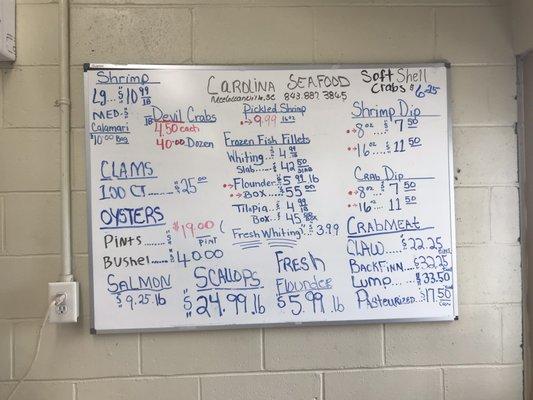 Shrimp
Lg...$10.99 lb
MED...$
Calamari
$10.00 Bag
CAROLINA SEAFOOD
McClellanville, SC 843.887.3845
Soft Shell
Crabs $6.25
Devil Crabs
4.50 each
40.00 Dozen
Pickled Shrimp
$9.99 16oz
Shrimp Dip
8oz...$7.50
16oz...$11.50
Frozen Fish Fillets
Whiting...$4.99 lb
Slab...$42.50 SLAB
Flounder...$5.99 lb
Box...$55.00
Tilapia...$4.99 lb
Box...$45.98
Fresh Whiting...$3.99
Crab Dip
8oz...$7.50
16oz...$11.50
CLAMS
100 CT......$25.00
OYSTERS
Pints.....$19.00 (
PINT
Bushel....$40.00
CrabMeat
CLAW...$22.25
BACKFINN...$32.25
Lump....$33.50
Pasteurized...$17.50
SALMON
$9.25 lb
SCALLOPS
$24.99 lb
FRESH
Flounder
$5.99 lb